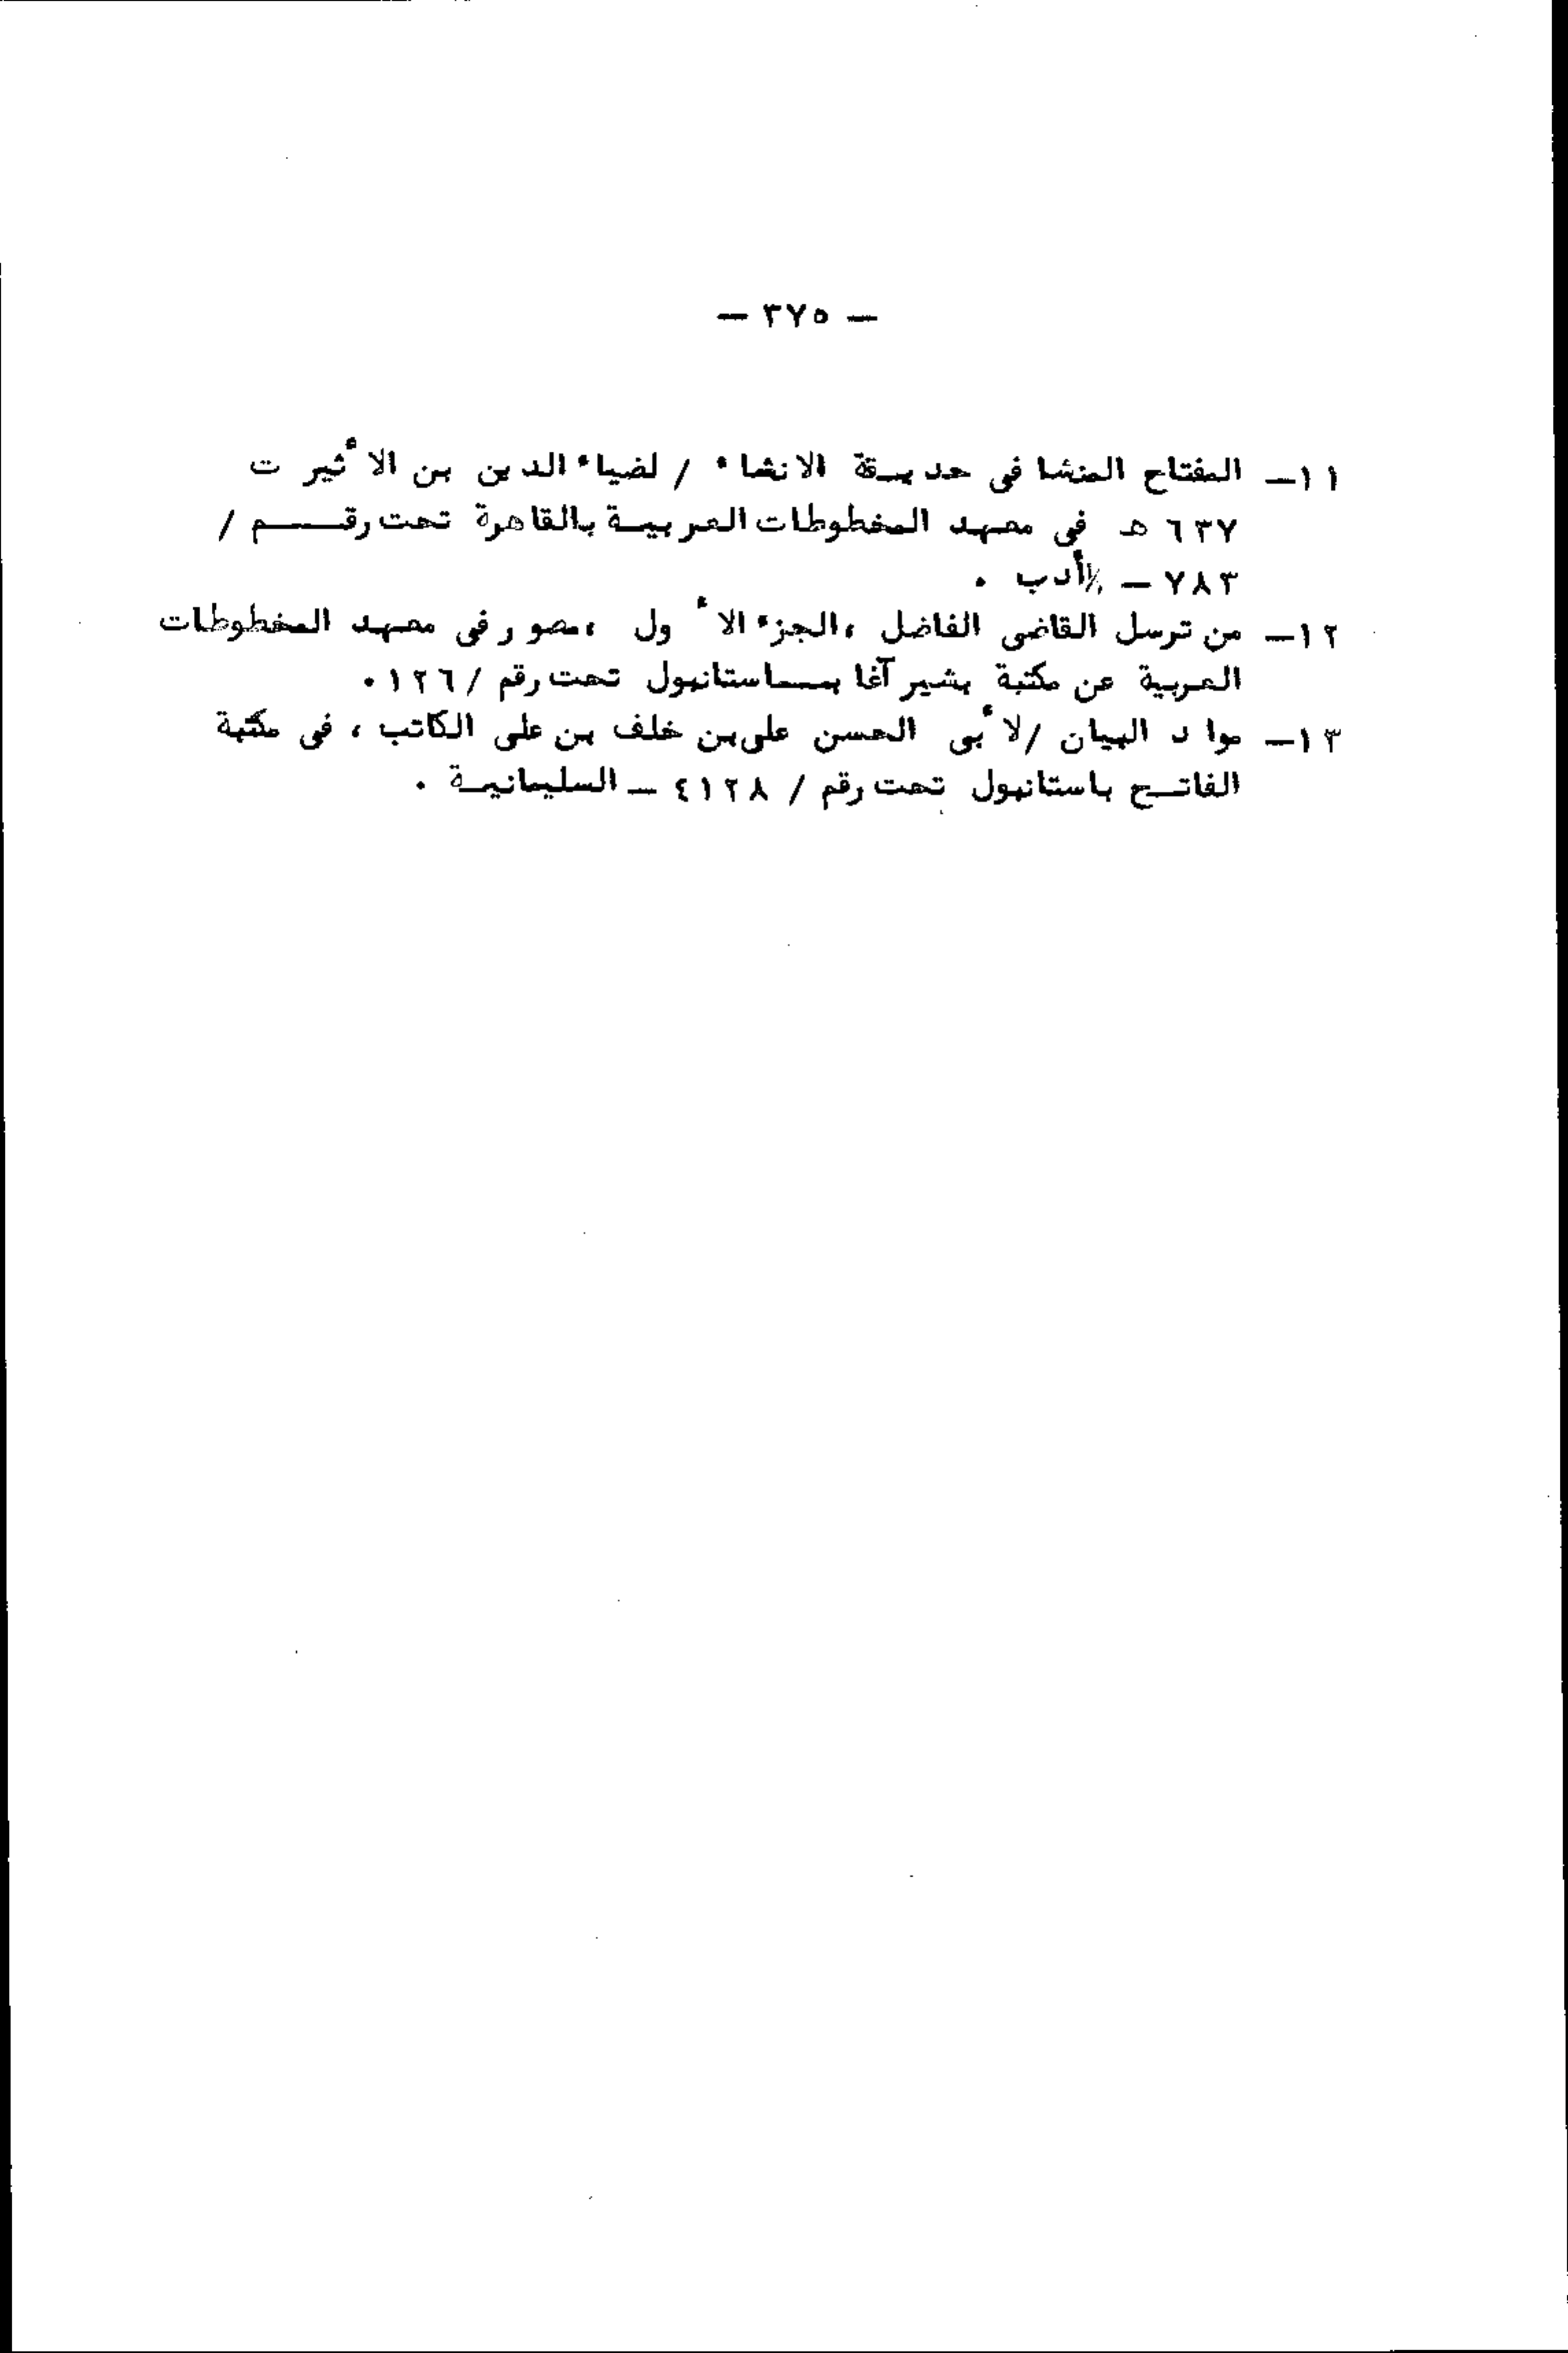 — ٣٧٥ —
١١— المفتاح المنشا فى حديقة الانشاء / لضياء الدين بن الأثير ت
٦٣٧ هـ فى معهد المخطوطات العربية بالقاهرة تحت رقم /
٧٨٣ — أدب .
١٢— من ترسل القاضى الفاضل ،الجزء الأول ،مصور فى معهد المخطوطات
العربية عن مكتبة بشير آغا باستانبول تحت رقم / ١٢٦ .
١٣— مواد البيان /لأبى الحسن على بن خلف بن على الكاتب ، فى مكتبة
الفاتح باستانبول تحت رقم / ٤١٢٨ — السليمانية .